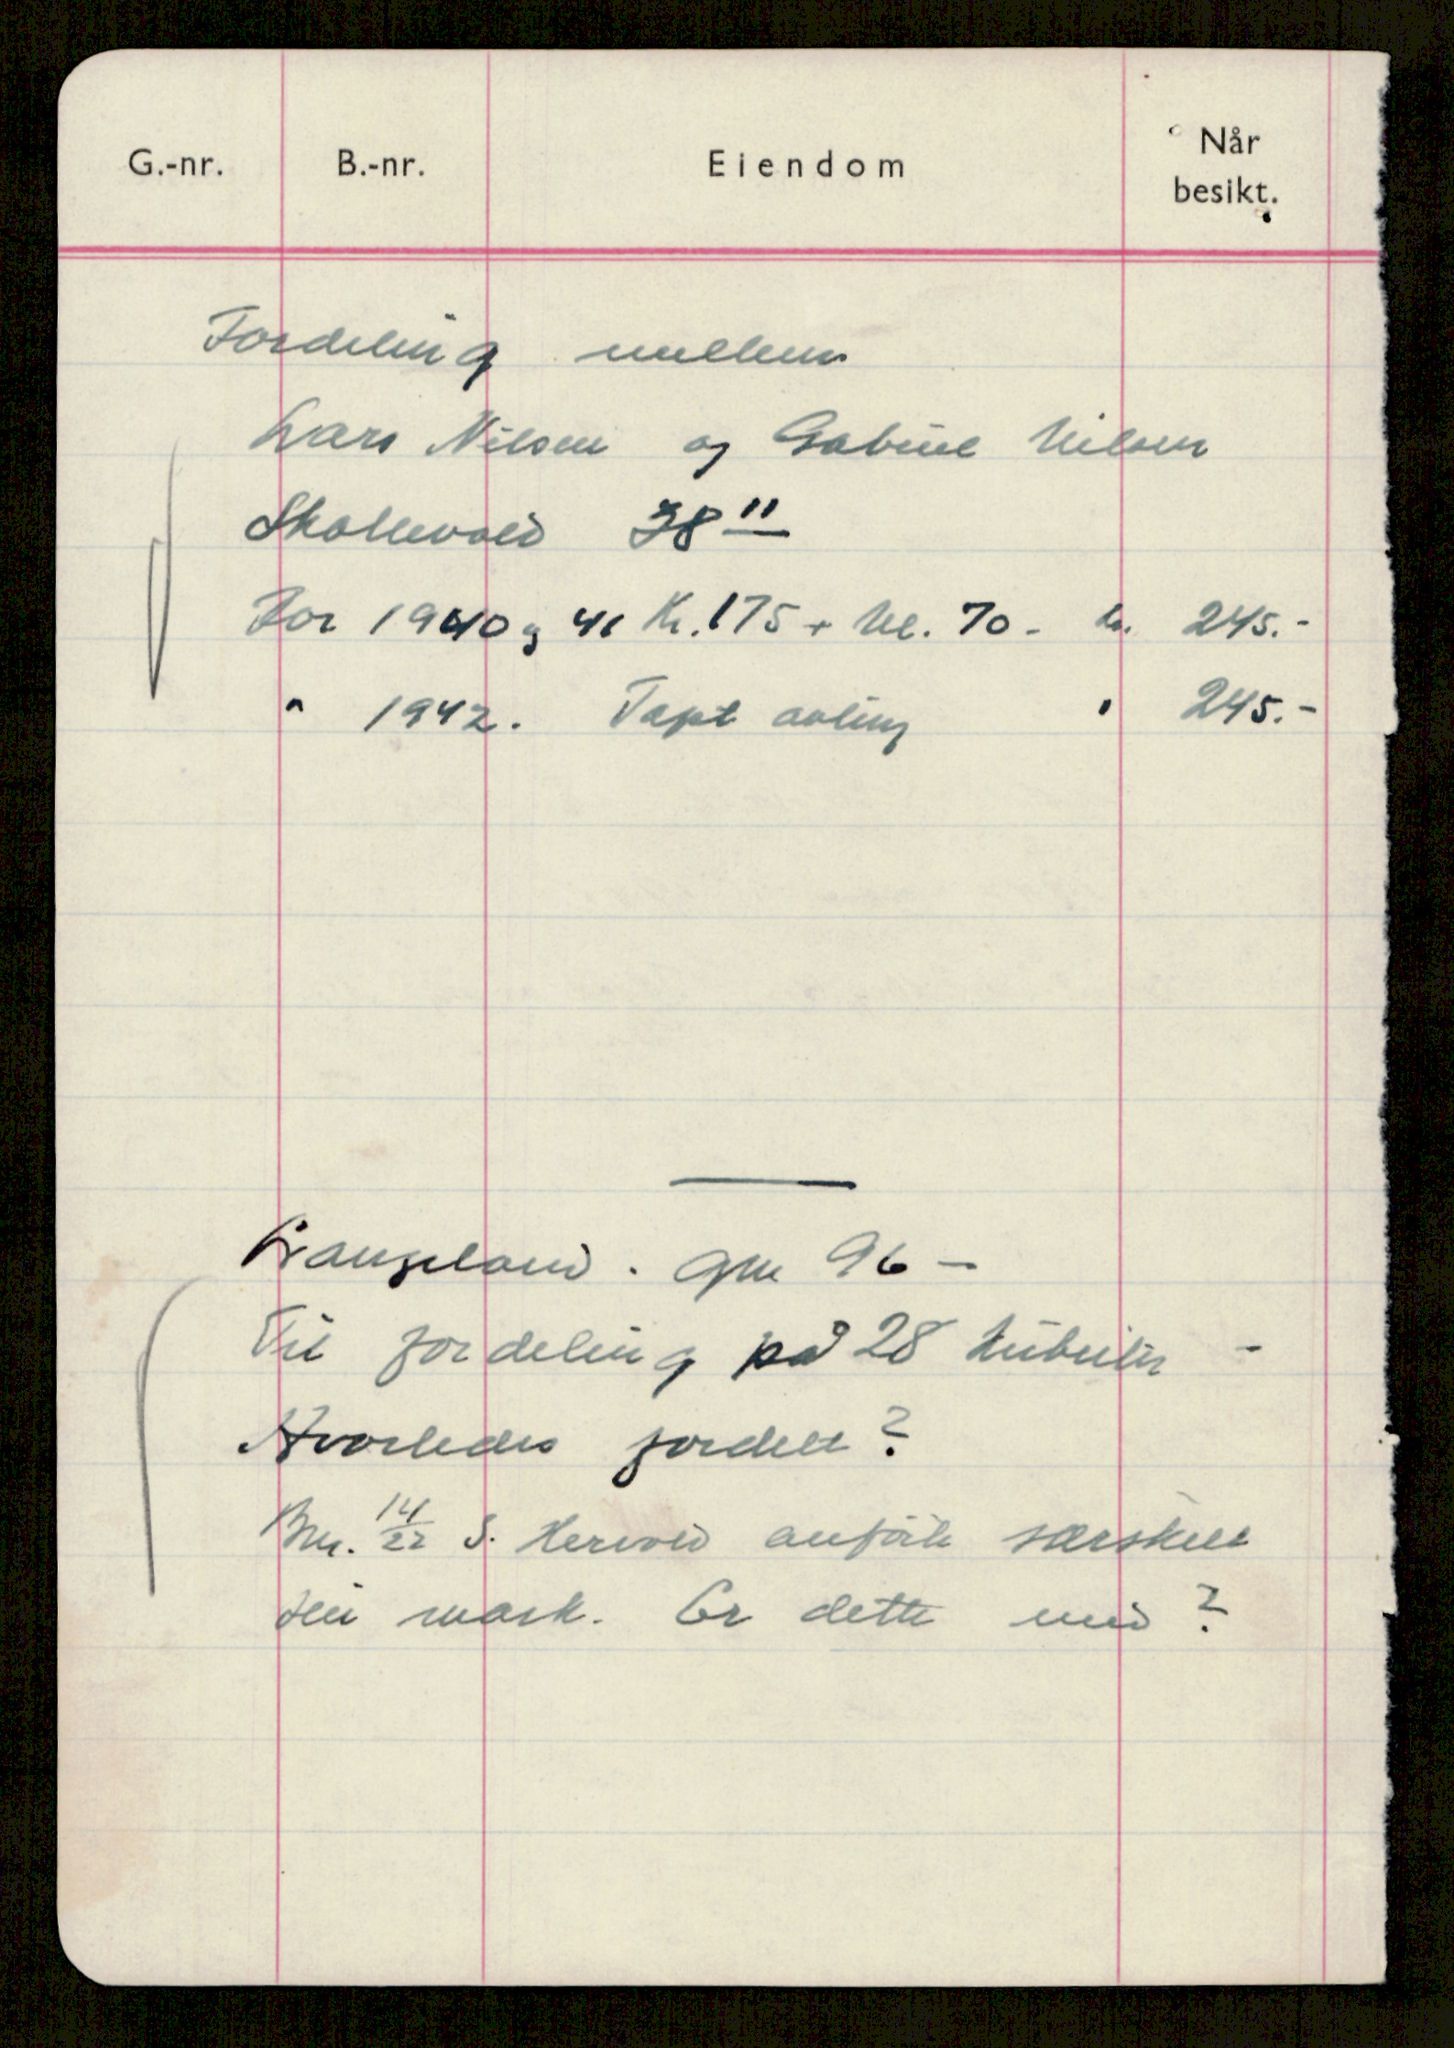 G.-nr.
B.-nr.
Eiendom
Når
besikt.
Fordeling mellem
Lars Nilsen og Gabriel Nilsen
Skallevold 38 11
For 1940 og 41 Kr. 175 + 70 - kr. 245.-
" 1942. Tapt avling " 245.-
Langeland. gnr 96 -
Til fordeling på 28 -
Hvorledes fordelt?
Bnr. 14/22 S. anført særskilt
sin mark. Er dette med?